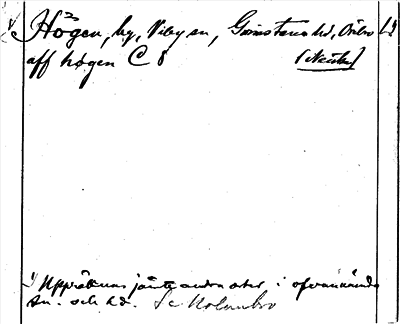 Högen, by, Viby sn, Grimstens hd, Örebro L.
aff høgen C 8 [Närike]
1) Uppräknas jämte andra orter i ofvannämnda
sn. och hd. Se Molambro